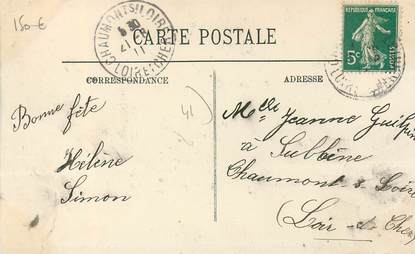 150€
CHAUMONT S LOIRE
LOIR-ET-CHER
CARTE POSTALE
RÉPUBLIQUE FRANÇAISE
5c
CORRESPONDANCE
ADRESSE
41
Bonne fête
Hélène
Simon
Mlle Jeanne
à
Chaumont s Loire
(Loir-et-Cher